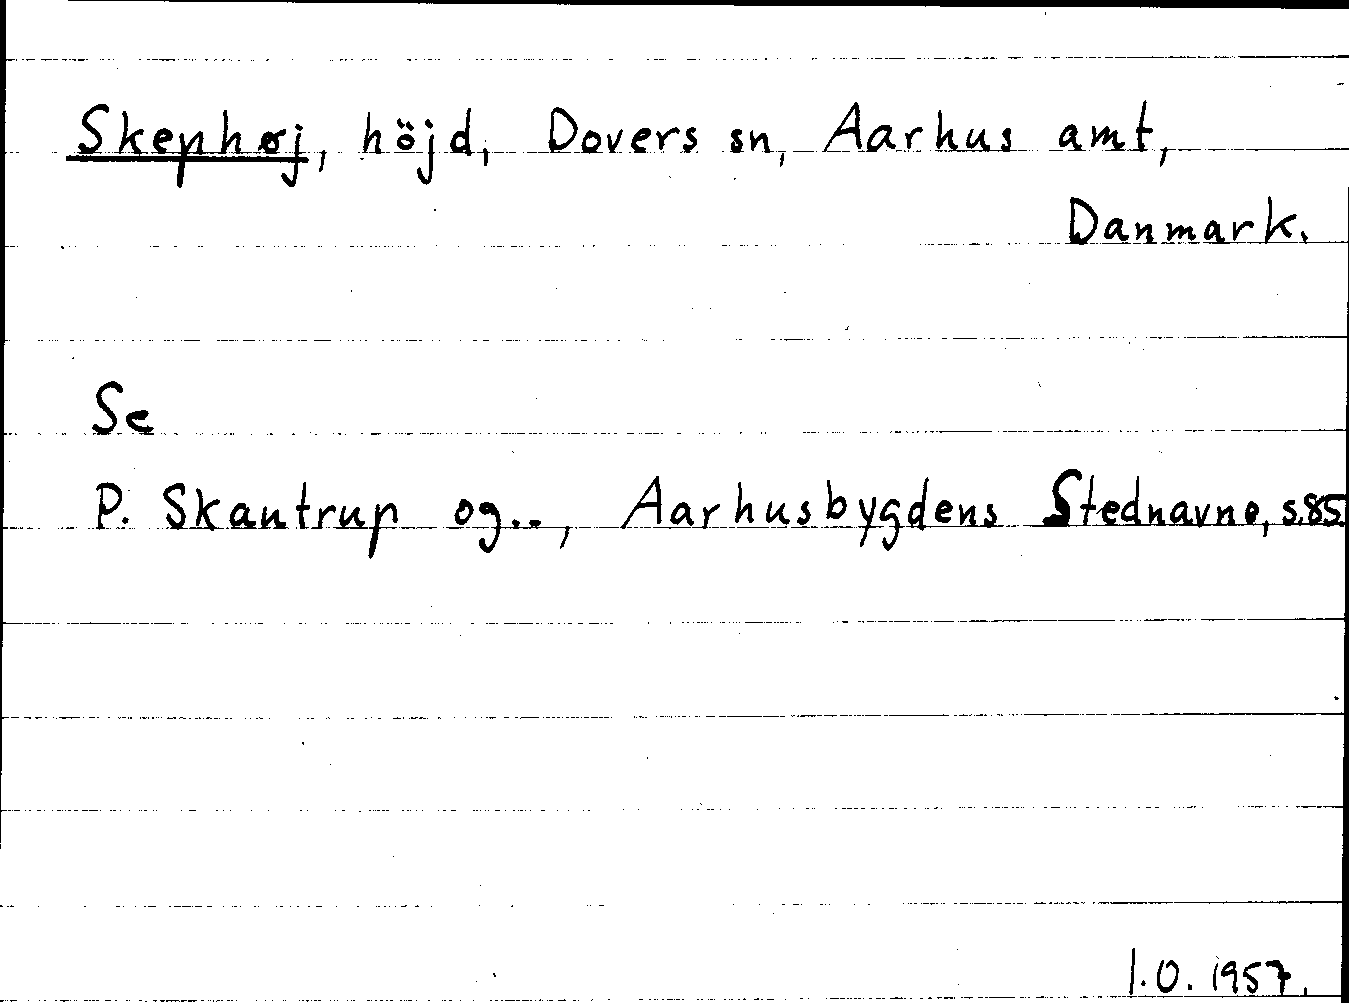 Skephøj, höjd, Dovers sn, Aarhus amt,
Danmark.
Se
P. Skautrup og.., Aarhusbygdens Stednavne, s.85.
I.O. 1957.